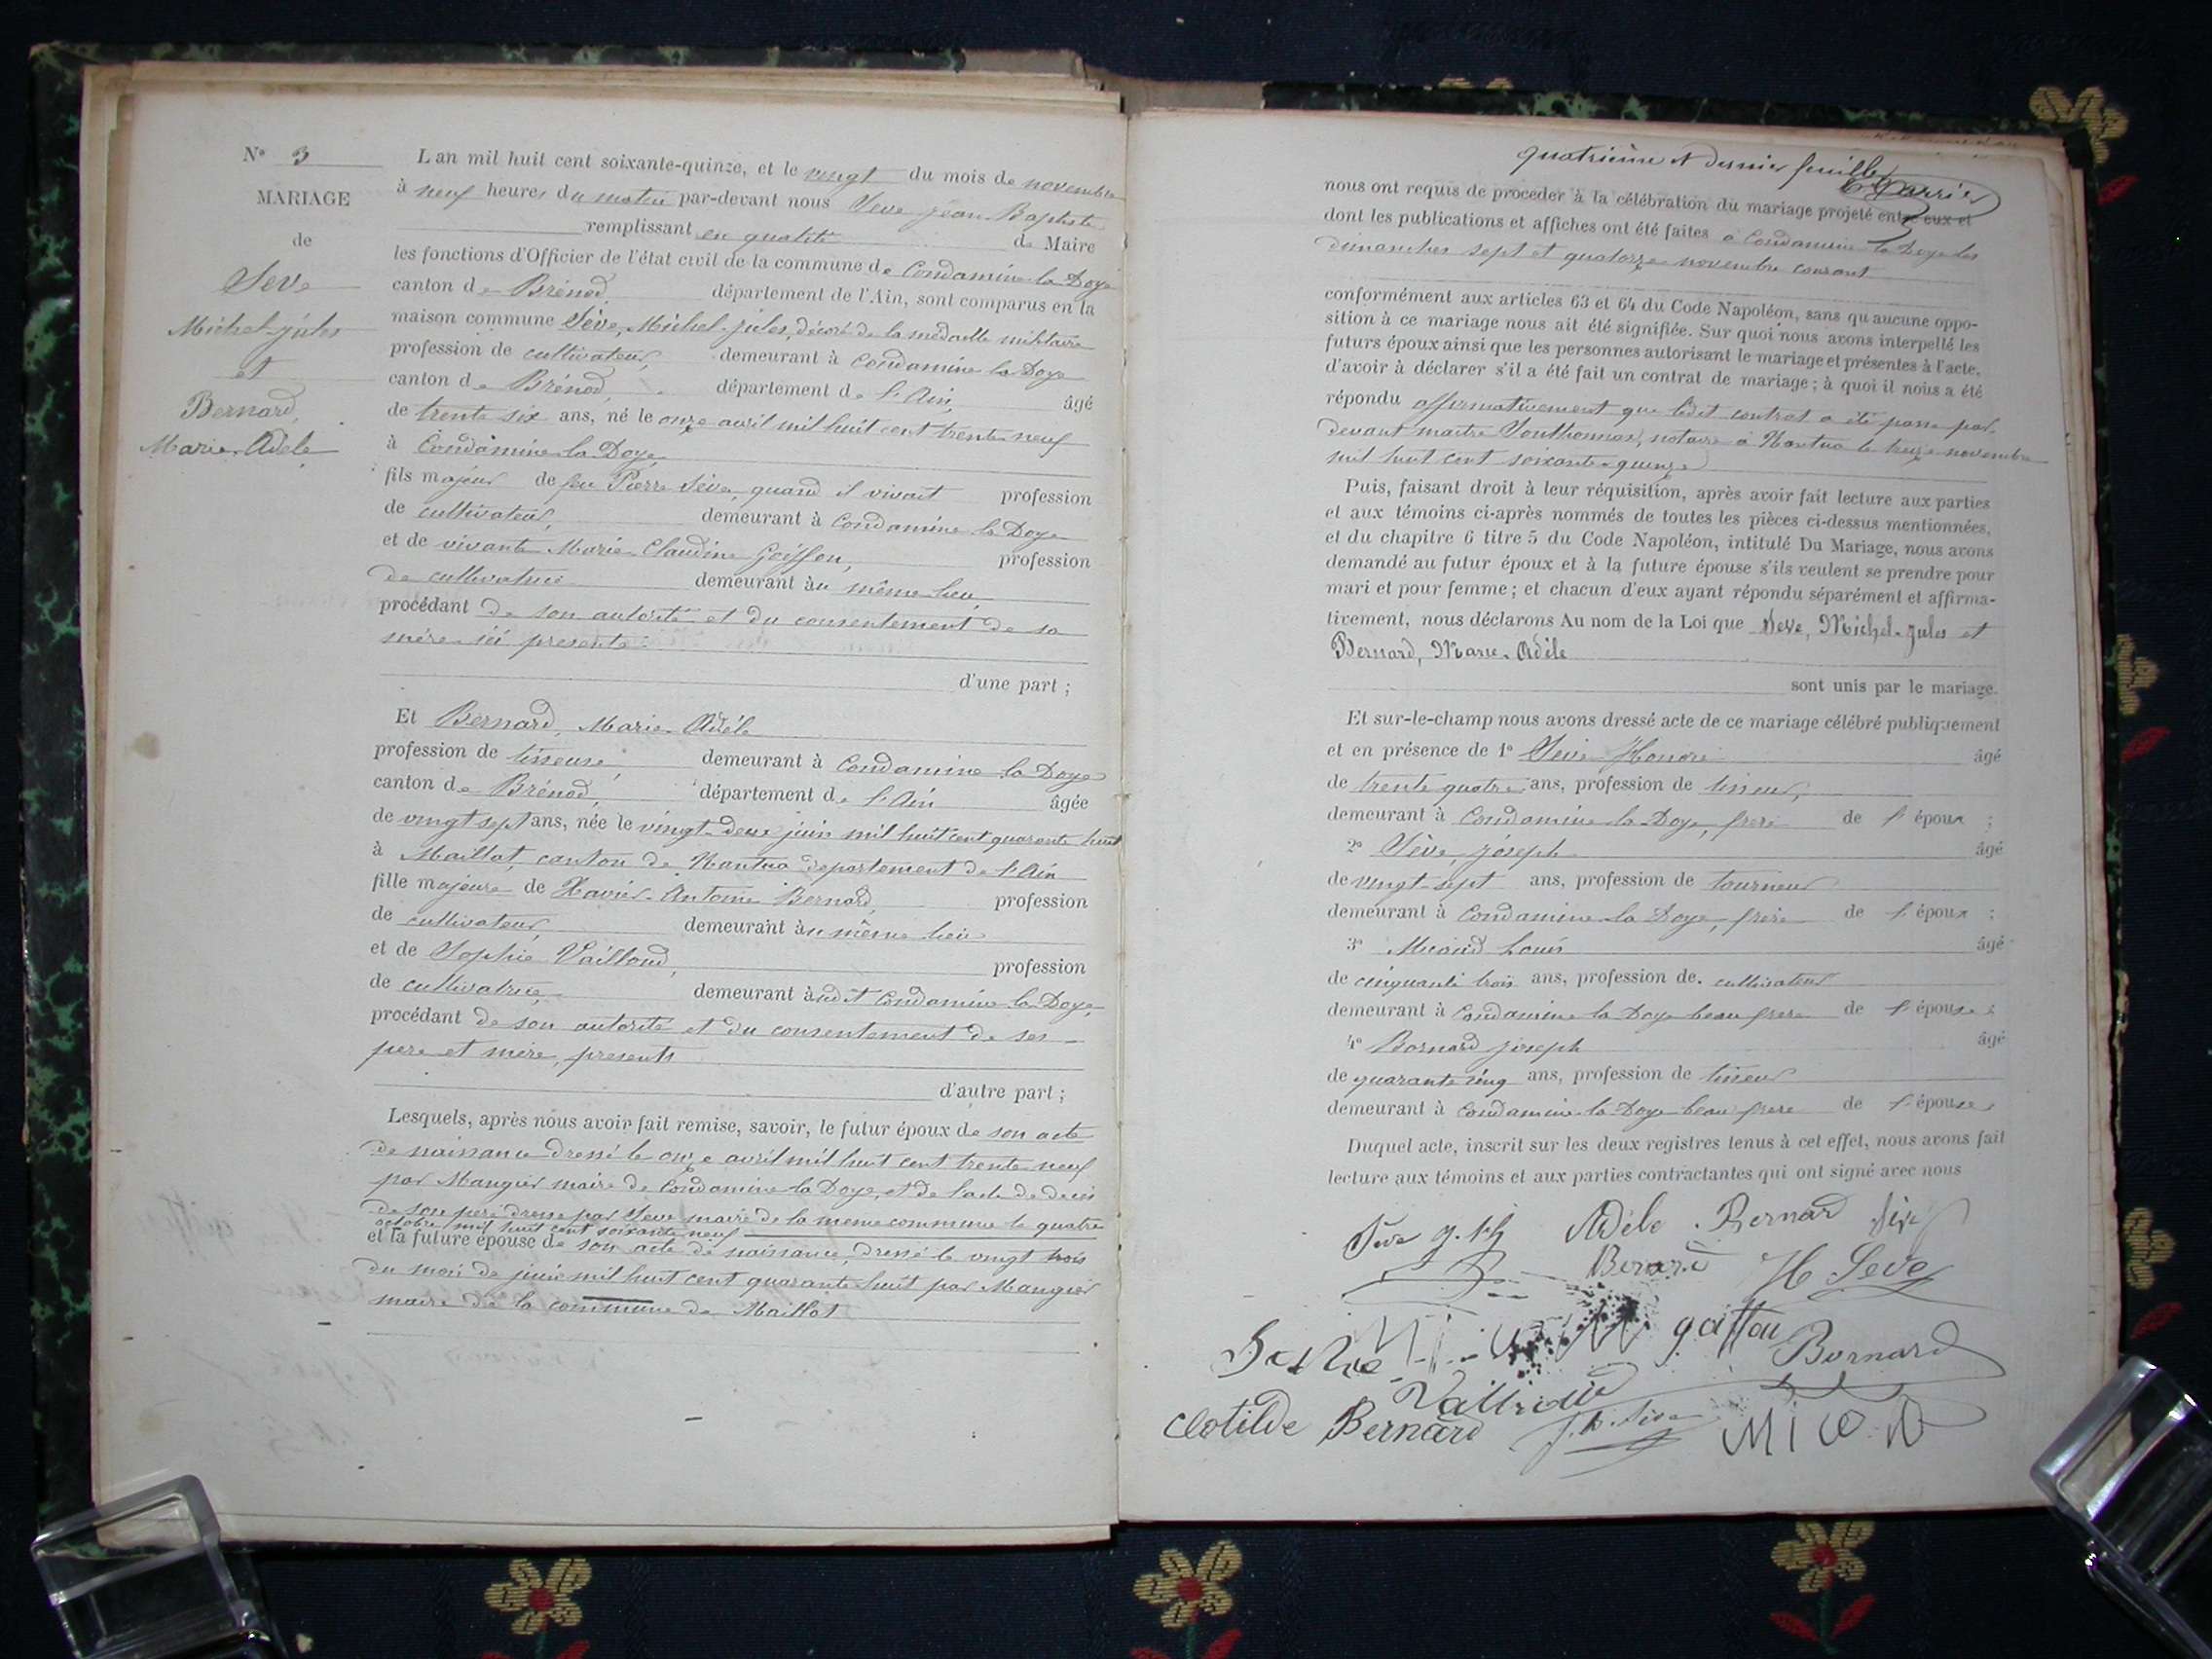 N° 3
MARIAGE
de
Seve
Michel-jules
et
Bernard,
Marie-Adele
L an mil huit cent soixante-quinze, et le vingt du mois de novembre
à neuf heures du matin par-devant nous Seve jean-Baptiste
remplissant en qualité de Maire
les fonctions d'Officier de l'état civil de la commune de Condamine-la-Doye
canton de Brénod, département de l'Ain, sont comparus en la
maison commune Sève, Michel-jules, décoré de la médaille militaire
profession de cultivateur, demeurant à Condamine la Doye
canton de Brénod, département de l'Ain, âgé
de trente six ans, né le onze avril mil huit cent trente neuf
à Condamine-la-Doye,
fils majeur de feu Pierre Sève, quand il vivait profession
de cultivateur, demeurant à Condamine la Doye
et de vivante Marie-Claudine Goiffon, profession
de cultivatrice demeurant au même lieu,
procédant de son autorité et du consentement de sa
mère ici presente
d'une part ;
Et Bernard, Marie-Adèle
profession de tisseuse, demeurant à Condamine la Doye
canton de Brénod, département de l'Ain âgée
de vingt sept ans, née le vingt-deux juin mil huit cent quarante huit
à Maillat, canton de Nantua département de l'Ain
fille majeure de Xavier-Antoine Bernard, profession
de cultivateur, demeurant au même lieu
et de Sophie Vailloud, profession
de cultivatrice, demeurant audit Condamine la Doye,
procédant de son autorité et du consentement de ses
père et mère, presents
d'autre part ;
Lesquels, après nous avoir fait remise, savoir, le futur époux de son acte
de naissance dressé le onze avril mil huit cent trente neuf
par Mangier maire de Condamine la Doye, et de l'acte de décès
de son père dressé par Seve maire de la meme commune le quatre
octobre mil huit cent soixante neuf
et la future épouse de son acte de naissance, dressé le vingt trois
du mois de juin mil huit cent quarante huit par Mangier
maire de la commune de Maillat
quatrième et dernier feuillet
nous ont requis de proceder à la célébration du mariage projeté entre eux et
dont les publications et affiches ont été faites à Condamine la Doye les
dimanches sept et quatorze novembre courant
conformément aux articles 63 et 64 du Code Napoléon, sans qu aucune oppo-
sition à ce mariage nous ait été signifiée. Sur quoi nous avons interpellé les
futurs époux ainsi que les personnes autorisant le mariage et présentes à l'acte,
d'avoir à déclarer s'il a été fait un contrat de mariage ; à quoi il nous a été
répondu affirmativement que ledit contrat a été passé par-
devant maitre Southonnax, notaire à Nantua le treize novembre
mil huit cent soixante-quinze
Puis, faisant droit à leur réquisition, après avoir fait lecture aux parties
et aux témoins ci-après nommés de toutes les pièces ci-dessus mentionnées,
et du chapitre 6 titre 5 du Code Napoléon, intitulé Du Mariage, nous avons
demandé au futur époux et à la future épouse s'ils veulent se prendre pour
mari et pour femme ; et chacun d'eux ayant répondu séparément et affirma-
tivement, nous déclarons Au nom de la Loi que Seve, Michel-jules et
Bernard, Marie-Adèle
sont unis par le mariage.
Et sur-le-champ nous avons dressé acte de ce mariage célébré publiquement
et en présence de 1° Sève Honoré âgé
de trente quatre ans, profession de tisseur,
demeurant à Condamine-la-Doye, frère de l'époux ;
2° Sève, joseph âgé
de vingt-sept ans, profession de tourneur
demeurant à Condamine la Doye, frère de l'époux ;
3° Micoud Louis âgé
de cinquante trois ans, profession de. cultivateur
demeurant à Condamine la Doye beau frere de l'épouse ;
4° Bornard joseph âgé
de quarante cinq ans, profession de tisseur
demeurant à Condamine-la-Doye beau frere de l'épouse
Duquel acte, inscrit sur les deux registres tenus à cet effet, nous avons fait
lecture aux témoins et aux parties contractantes qui ont signé avec nous
Adèle Bernard
H Seve
goiffon
Bornard
Clotilde Bernard